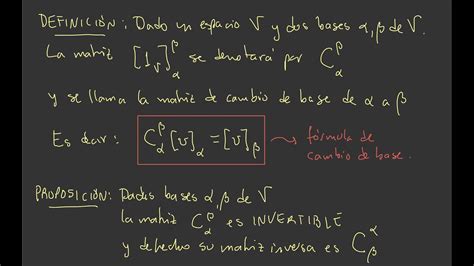 DEFINICIÓN: Dado un espacio V y dos bases α, β de V.
La matriz [1_V]_α^β se denotará por C_α^β
y se llama la matriz de cambio de base de α a β
Es decir: C_α^β [v]_α = [v]_β → fórmula de
cambio de base.
PROPOSICIÓN: Dadas bases α, β de V
la matriz C_α^β es INVERTIBLE
y de hecho su matriz inversa es C_β^α